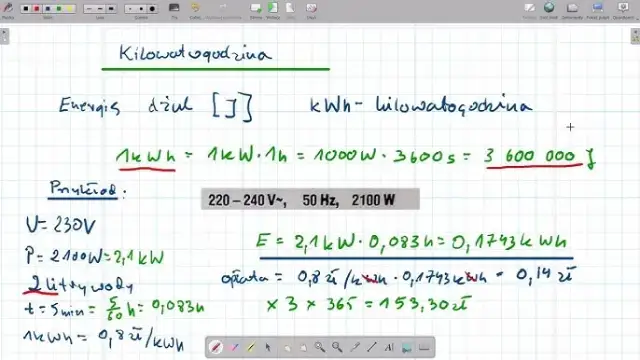 Kilowatogodzina
Energia dżul [J] kWh - kilowatogodzina
1kWh = 1kW · 1h = 1000W · 3600s = 3 600 000 J
Przykład:
220 – 240 V~, 50 Hz, 2100 W
U = 230V
P = 2100W = 2,1 kW
E = 2,1 kW · 0,083h = 0,1743 kWh
2 litry wody
opłata = 0,8 zł/kWh · 0,1743 kWh = 0,14 zł
t = 5min = 5/60 h = 0,083h
× 3 × 365 = 153,30 zł
1kWh = 0,8 zł/kWh